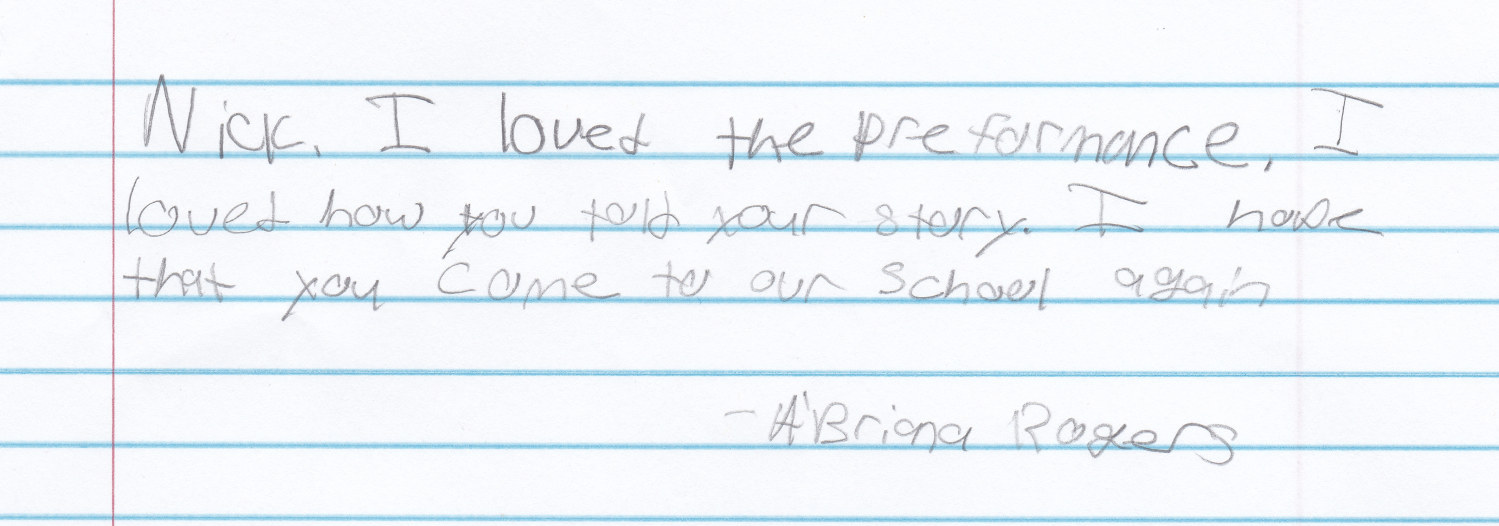 Nick, I loved the preformance, I
loved how you told your story. I hope
that you come to our school again
-A'Briana Rogers